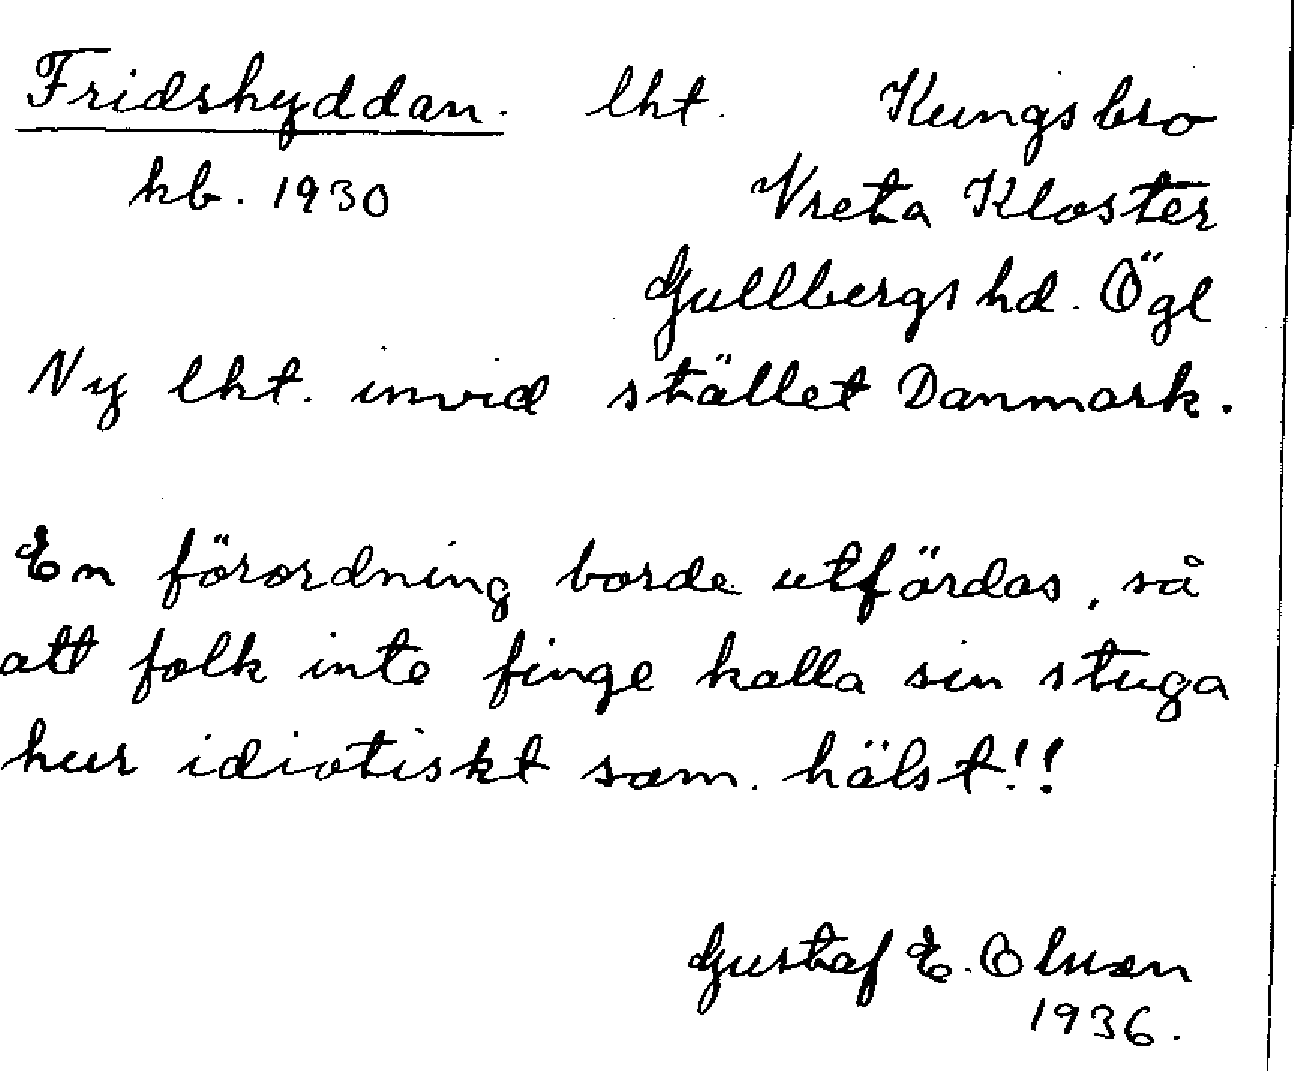 Fridshyddan. lht. Kungsbro
kb. 1930 Vreta Kloster
Gullbergs hd. Ögl
Ny lht. invid stället Danmark.
En förordning borde utfärdas, så
att folk inte finge kalla sin stuga
hur idiotiskt som. hälst!!
Gustaf E. Olsson
1936.